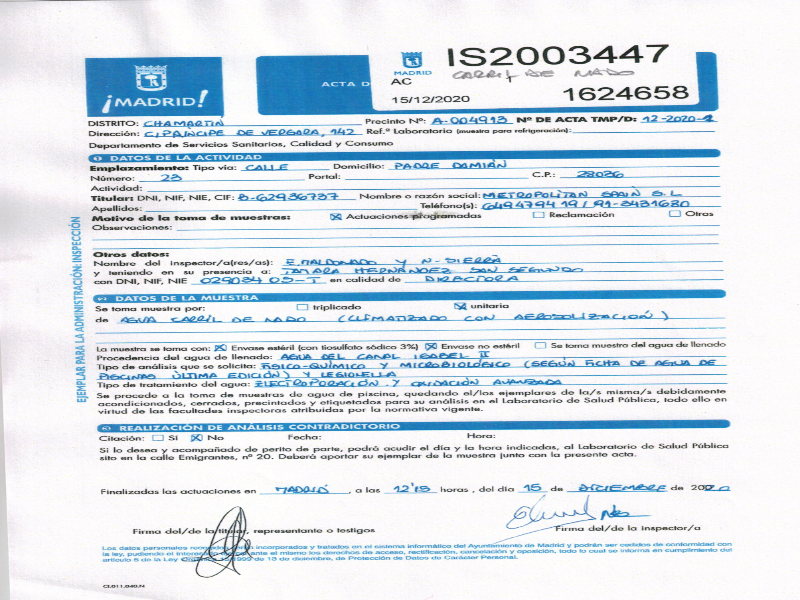 IS2003447
MADRID CARRIL DE NADO
AC
15/12/2020 1624658
¡MADRID!
ACTA D
DISTRITO: CHAMARTIN Precinto Nº: A-004913 Nº DE ACTA TMP/D: 12-2020-1
Dirección: C/PRINCIPE DE VERGARA, 142 Ref.º Laboratorio (muestra para refrigeración):
Departamento de Servicios Sanitarios, Calidad y Consumo
DATOS DE LA ACTIVIDAD
Emplazamiento: Tipo vía: CALLE Domicilio: PADRE DAMIÁN
Número: 23 Portal: C.P.: 28036
Actividad:
Titular: DNI, NIF, NIE, CIF: B-62936737 Nombre o razón social: METROPOLITAN SPAIN S.L
Apellidos: Teléfono(s): 649479419/91-3431680
Motivo de la toma de muestras: Actuaciones programadas Reclamación Otros
Observaciones:
Otros datos:
Nombre del inspector/a(res/as): E. MALDONADO Y N. SIERRA
y teniendo en su presencia a: TAMARA HERNÁNDEZ SAN SEGUNDO
con DNI, NIF, NIE 02903403-T en calidad de DIRECTORA
DATOS DE LA MUESTRA
Se toma muestra por: triplicado unitaria
de AGUA CARRIL DE NADO (CLIMATIZADO CON AEROSOLIZACIÓN)
La muestra se toma con: Envase estéril (con tiosulfato sódico 3%) Envase no estéril Se toma muestra del agua de llenado
Procedencia del agua de llenado: AGUA DEL CANAL ISABEL II
Tipo de análisis que se solicita: FISICO-QUÍMICO Y MICROBIOLÓGICO (SEGÚN FICHA DE AGUA DE
PISCINAS ÚLTIMA EDICIÓN) Y LEGIONELLA
Tipo de tratamiento del agua: ELECTROPORACIÓN Y OXIDACIÓN AVANZADA
Se procede a la toma de muestras de agua de piscina, quedando el/los ejemplares de la/s misma/s debidamente
acondicionados, cerrados, precintados y etiquetados para su análisis en el Laboratorio de Salud Pública, todo ello en
virtud de las facultades inspectoras atribuidas por la normativa vigente.
REALIZACIÓN DE ANÁLISIS CONTRADICTORIO
Citación: Sí No Fecha: Hora:
Si lo desea y acompañado de perito de parte, podrá acudir el día y la hora indicadas, al Laboratorio de Salud Pública
sito en la calle Emigrantes, nº 20. Deberá aportar su ejemplar de la muestra junto con la presente acta.
Finalizadas las actuaciones en MADRID, a las 12'15 horas, del día 15 de DICIEMBRE de 2020
Firma del/de la titular, representante o testigos Firma del/de la inspector/a
Los datos personales recogidos serán incorporados y tratados en el sistema informático del Ayuntamiento de Madrid y podrán ser cedidos de conformidad con
la ley, pudiendo el interesado ante el mismo los derechos de acceso, rectificación, cancelación y oposición, todo lo cual se informa en cumplimiento del
artículo 5 de la Ley Orgánica 15/1999 de 13 de diciembre, de Protección de Datos de Carácter Personal.
CI.011.040.N
EJEMPLAR PARA LA ADMINISTRACIÓN: INSPECCIÓN